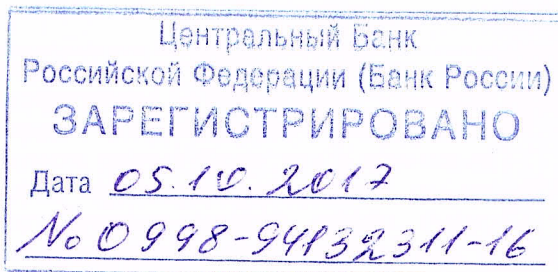 Центральный Банк
Российской Федерации (Банк России)
ЗАРЕГИСТРИРОВАНО
Дата 05.10.2017
№ 0998-94132311-16